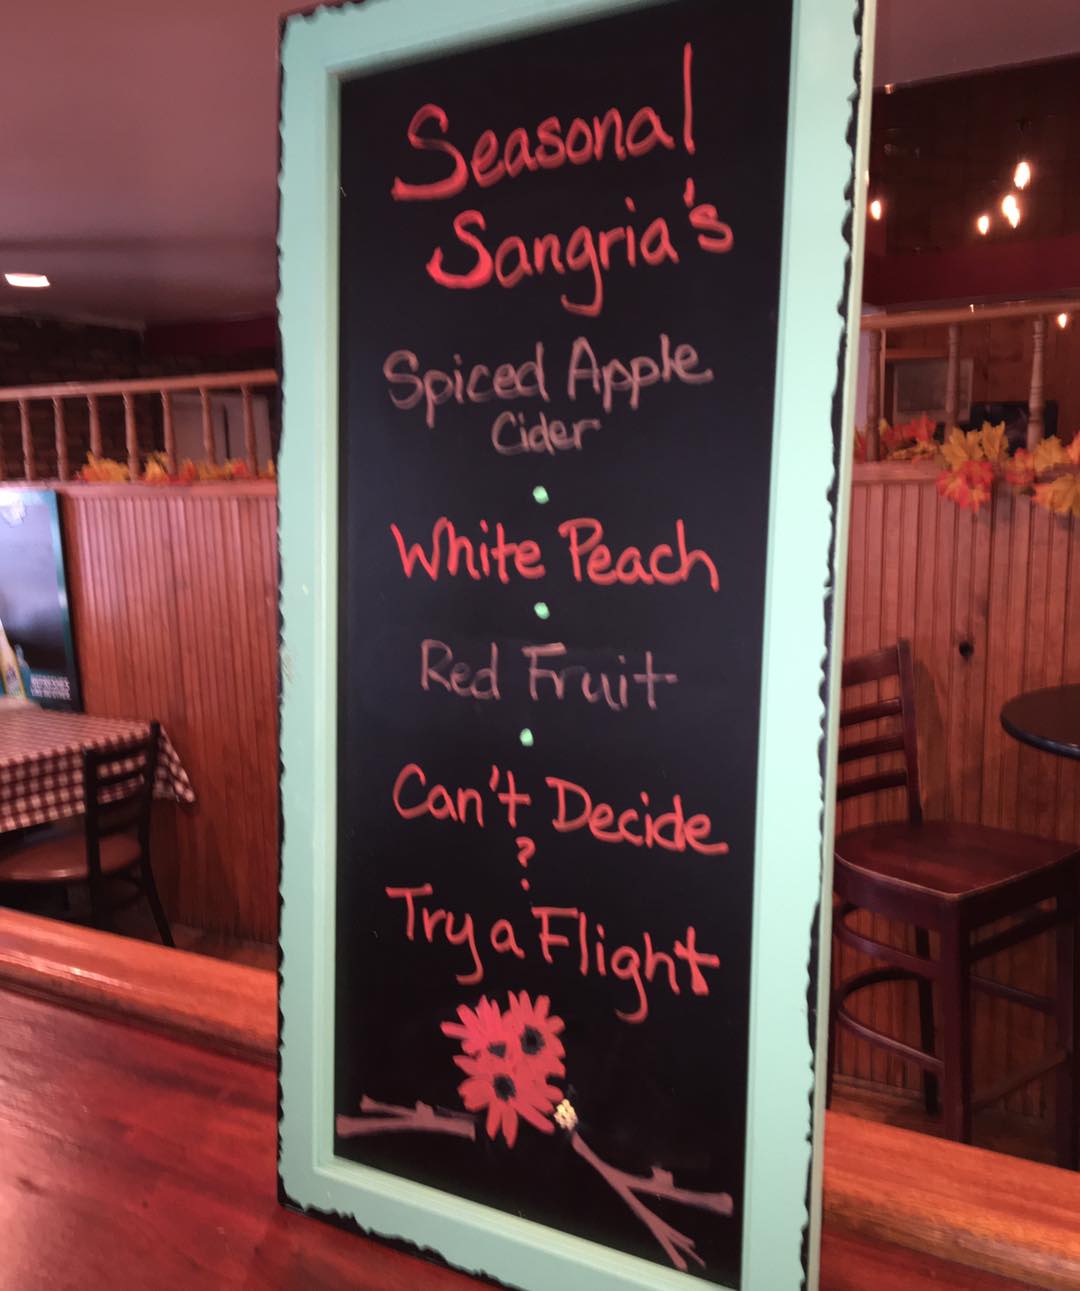 Seasonal
Sangria's
Spiced Apple
Cider
White Peach
Red Fruit
Can't Decide
?
Try a Flight